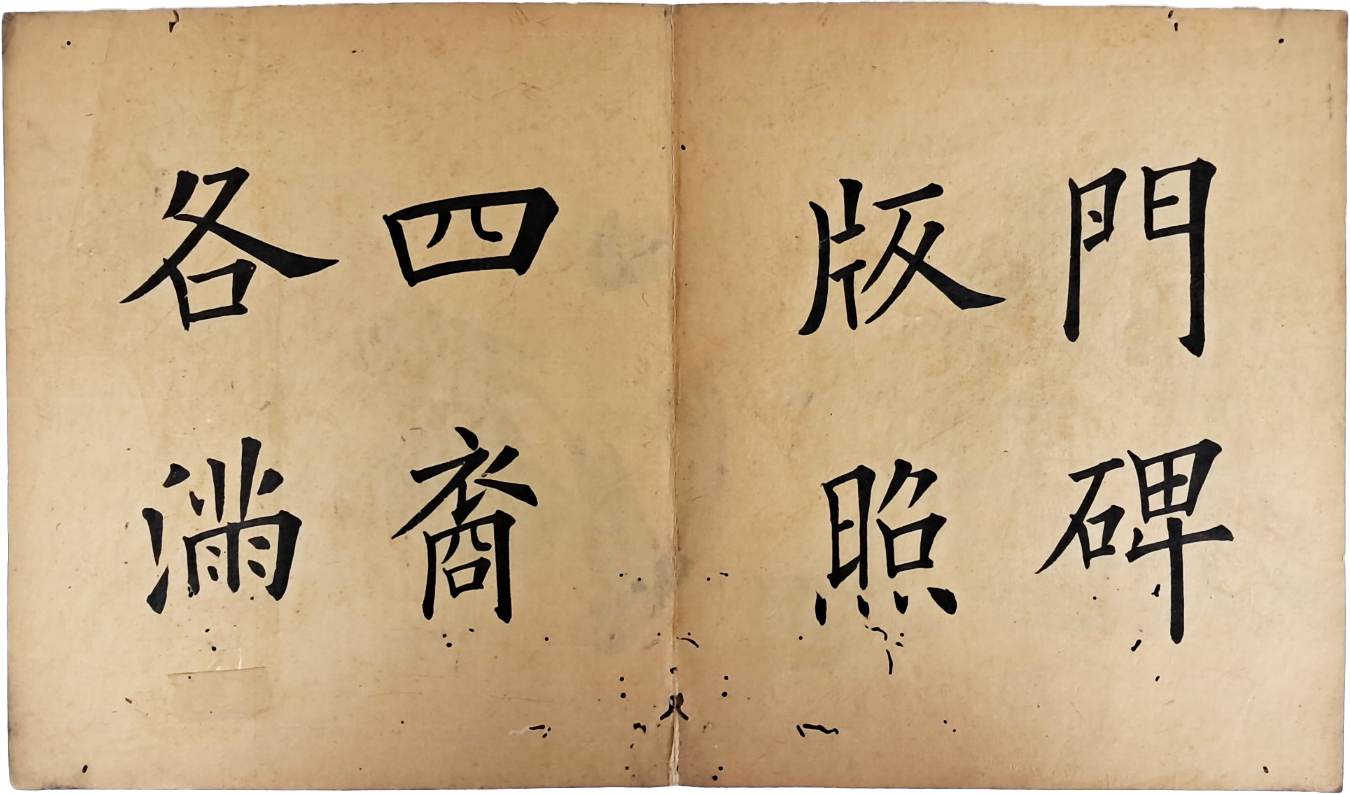 門碑
版照
四裔
各滿